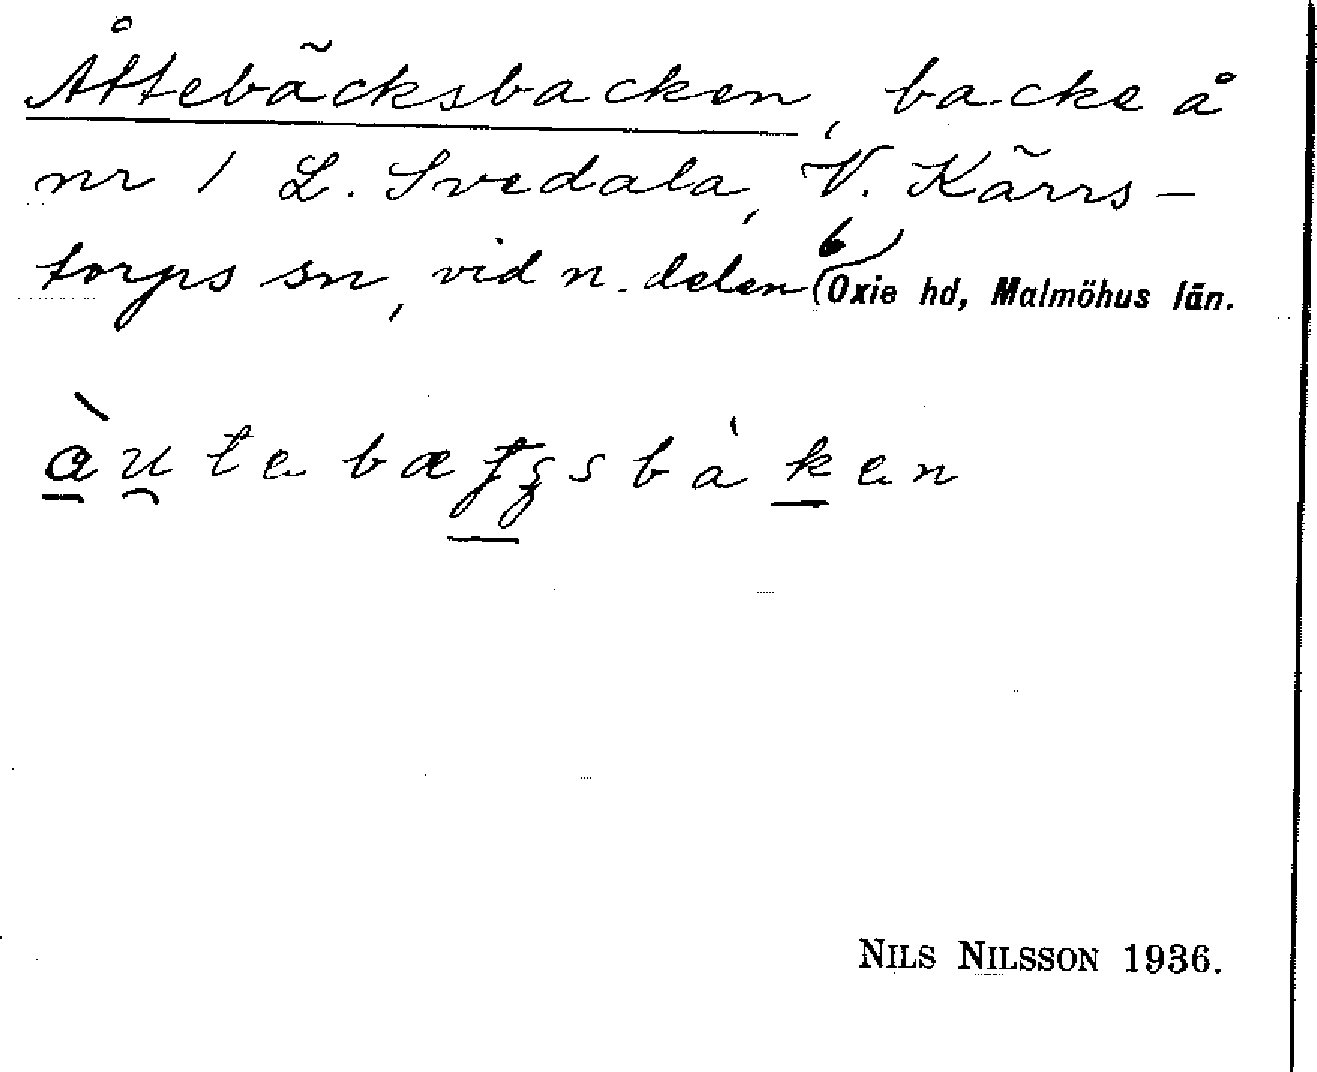 Åttebäcksbacken, backe å
nr 1 L. Svedala, V. Kärrs-
torps sn, vid n. delen b (Oxie hd, Malmöhus län.
NILS NILSSON 1936.